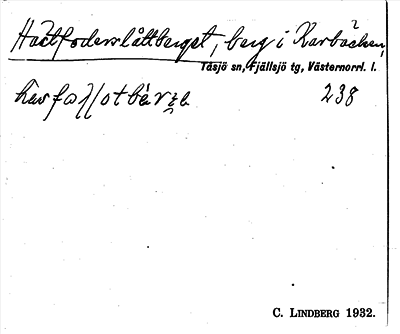 Hästfoderslåttberget, berg i Karbäcken,
Tåsjö sn, Fjällsjö tg, Västernorrl. l.
238
C. LINDBERG 1932.